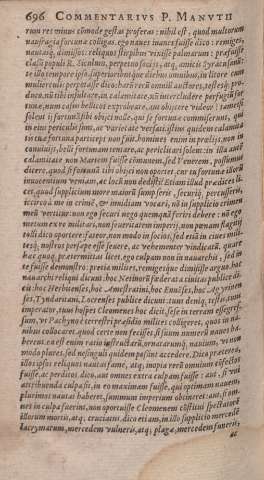 696 COMMENTARIVS P. MANVTII
rum res minus cõmode gestas proferas: nihil est, quod multorum
naufragia fortunæ colligas. ego naues inanes fuisse dico: remiges,
nautasq́; dimissos: reliquos stirpibus vixisse palmarum: præfuisse
classi populi R. Siculum, perpetuo socijs, atq; amicis Syracusanũ:
te illo tempore ipso, superioribusque diebus omnibus, in litore cum
mulierculis perpotasse dico: harũ rerũ omniũ auctores, testesq́; pro-
duco. nũ tibi insultare in calamitate, nũ intercludere perfugia for-
tunæ, num casus bellicos exprobrare, aut obijcere videor? tametsi
solent ij fortunã sibi obijci nolle, qui se fortunæ commiserunt, qui
in eius periculis sunt, ac varietate versati. istius quidem calamita
tis tuæ fortuna particeps non fuit. homines enim in prælijs, non in
conuiuijs, belli fortunam tentare, ac periclitari solent: in illa autẽ
calamitate non Martem fuisse cõmunem, sed Venerem, possumus
dicere. quod si fortunã tibi obijci non oportet, cur tu fortunæ illorũ
innocentium veniam, ac locũ non dedisti? Etiam illud præcidas li-
cet, quod supplicium more maiorũ sumpseris, securiq́; percusseris,
iccirco à me in crimẽ, & inuidiam vocari. nõ in supplicio crimen
meũ vertitur: non ego securi nego quemquã feriri debere: nõ ego
metum ex re militari, non seueritatem imperij, non pœnam flagitij
tolli dico oportere: fateor, non modo in socios, sed etiã in ciues mili-
tesq́; nostros persæpe esse seuere, ac vehementer vindicatũ. quare
hæc quoq; prætermittas licet. ego culpam non in nauarchis, sed in
te fuisse demonstro: te pretio milites, remigesque dimisisse arguo. hoc
nauarchi reliqui dicunt: hoc Netinorũ fœderata ciuitas publice di-
cit: hoc Herbitenses, hoc Amestratini, hoc Ennẽses, hoc Agyrinen
ses, Tyndaritani, Locrenses publice dicunt: tuus deniq; testis, tuus
imperator, tuus hospes Cleomenes hoc dicit, sese in terram esse egres-
sum, vt Pachyno è terrestri præsidio milites colligeret, quos in na-
uibus collocaret. quod certe non fecisset, si suum numerũ naues ha-
berent. ea est enim ratio instructarũ, ornatarumq́; nauium, vt non
modo plures, sed ne singuli quidem possint accedere. Dico præterea,
illos ipsos reliquos nautas fame, atq; inopia rerũ omnium cõfectos
fuisse. ac perditos. dico, aut omnes extra culpam fuisse: aut, si vni
attribuenda culpa sit, in eo maximam fuisse, qui optimam nauem,
plurimos nautas haberet, summum imperium obtineret: aut, si om
nes in culpa fuerint, non oportuisse Cleomenem cõstitui spectatorẽ
illorum mortis, atq; cruciatus. dico etiam, in illo supplicio mercedẽ
lacrymarum, mercedem vulneris, atq; plagæ, mercedem funeris,
ac